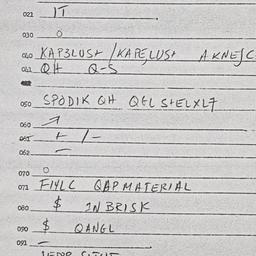 021 IT
030 O
040 KAP3LUS+ /KAPE,LUS+
041 QH Q-S
050 SPODIK QH QEL S+ELXL7
060
061 + /-
062 -
070 O
071 FIYLC QAPMATERIAL
080 $ INBRISK
090 $ QANGL
091 -